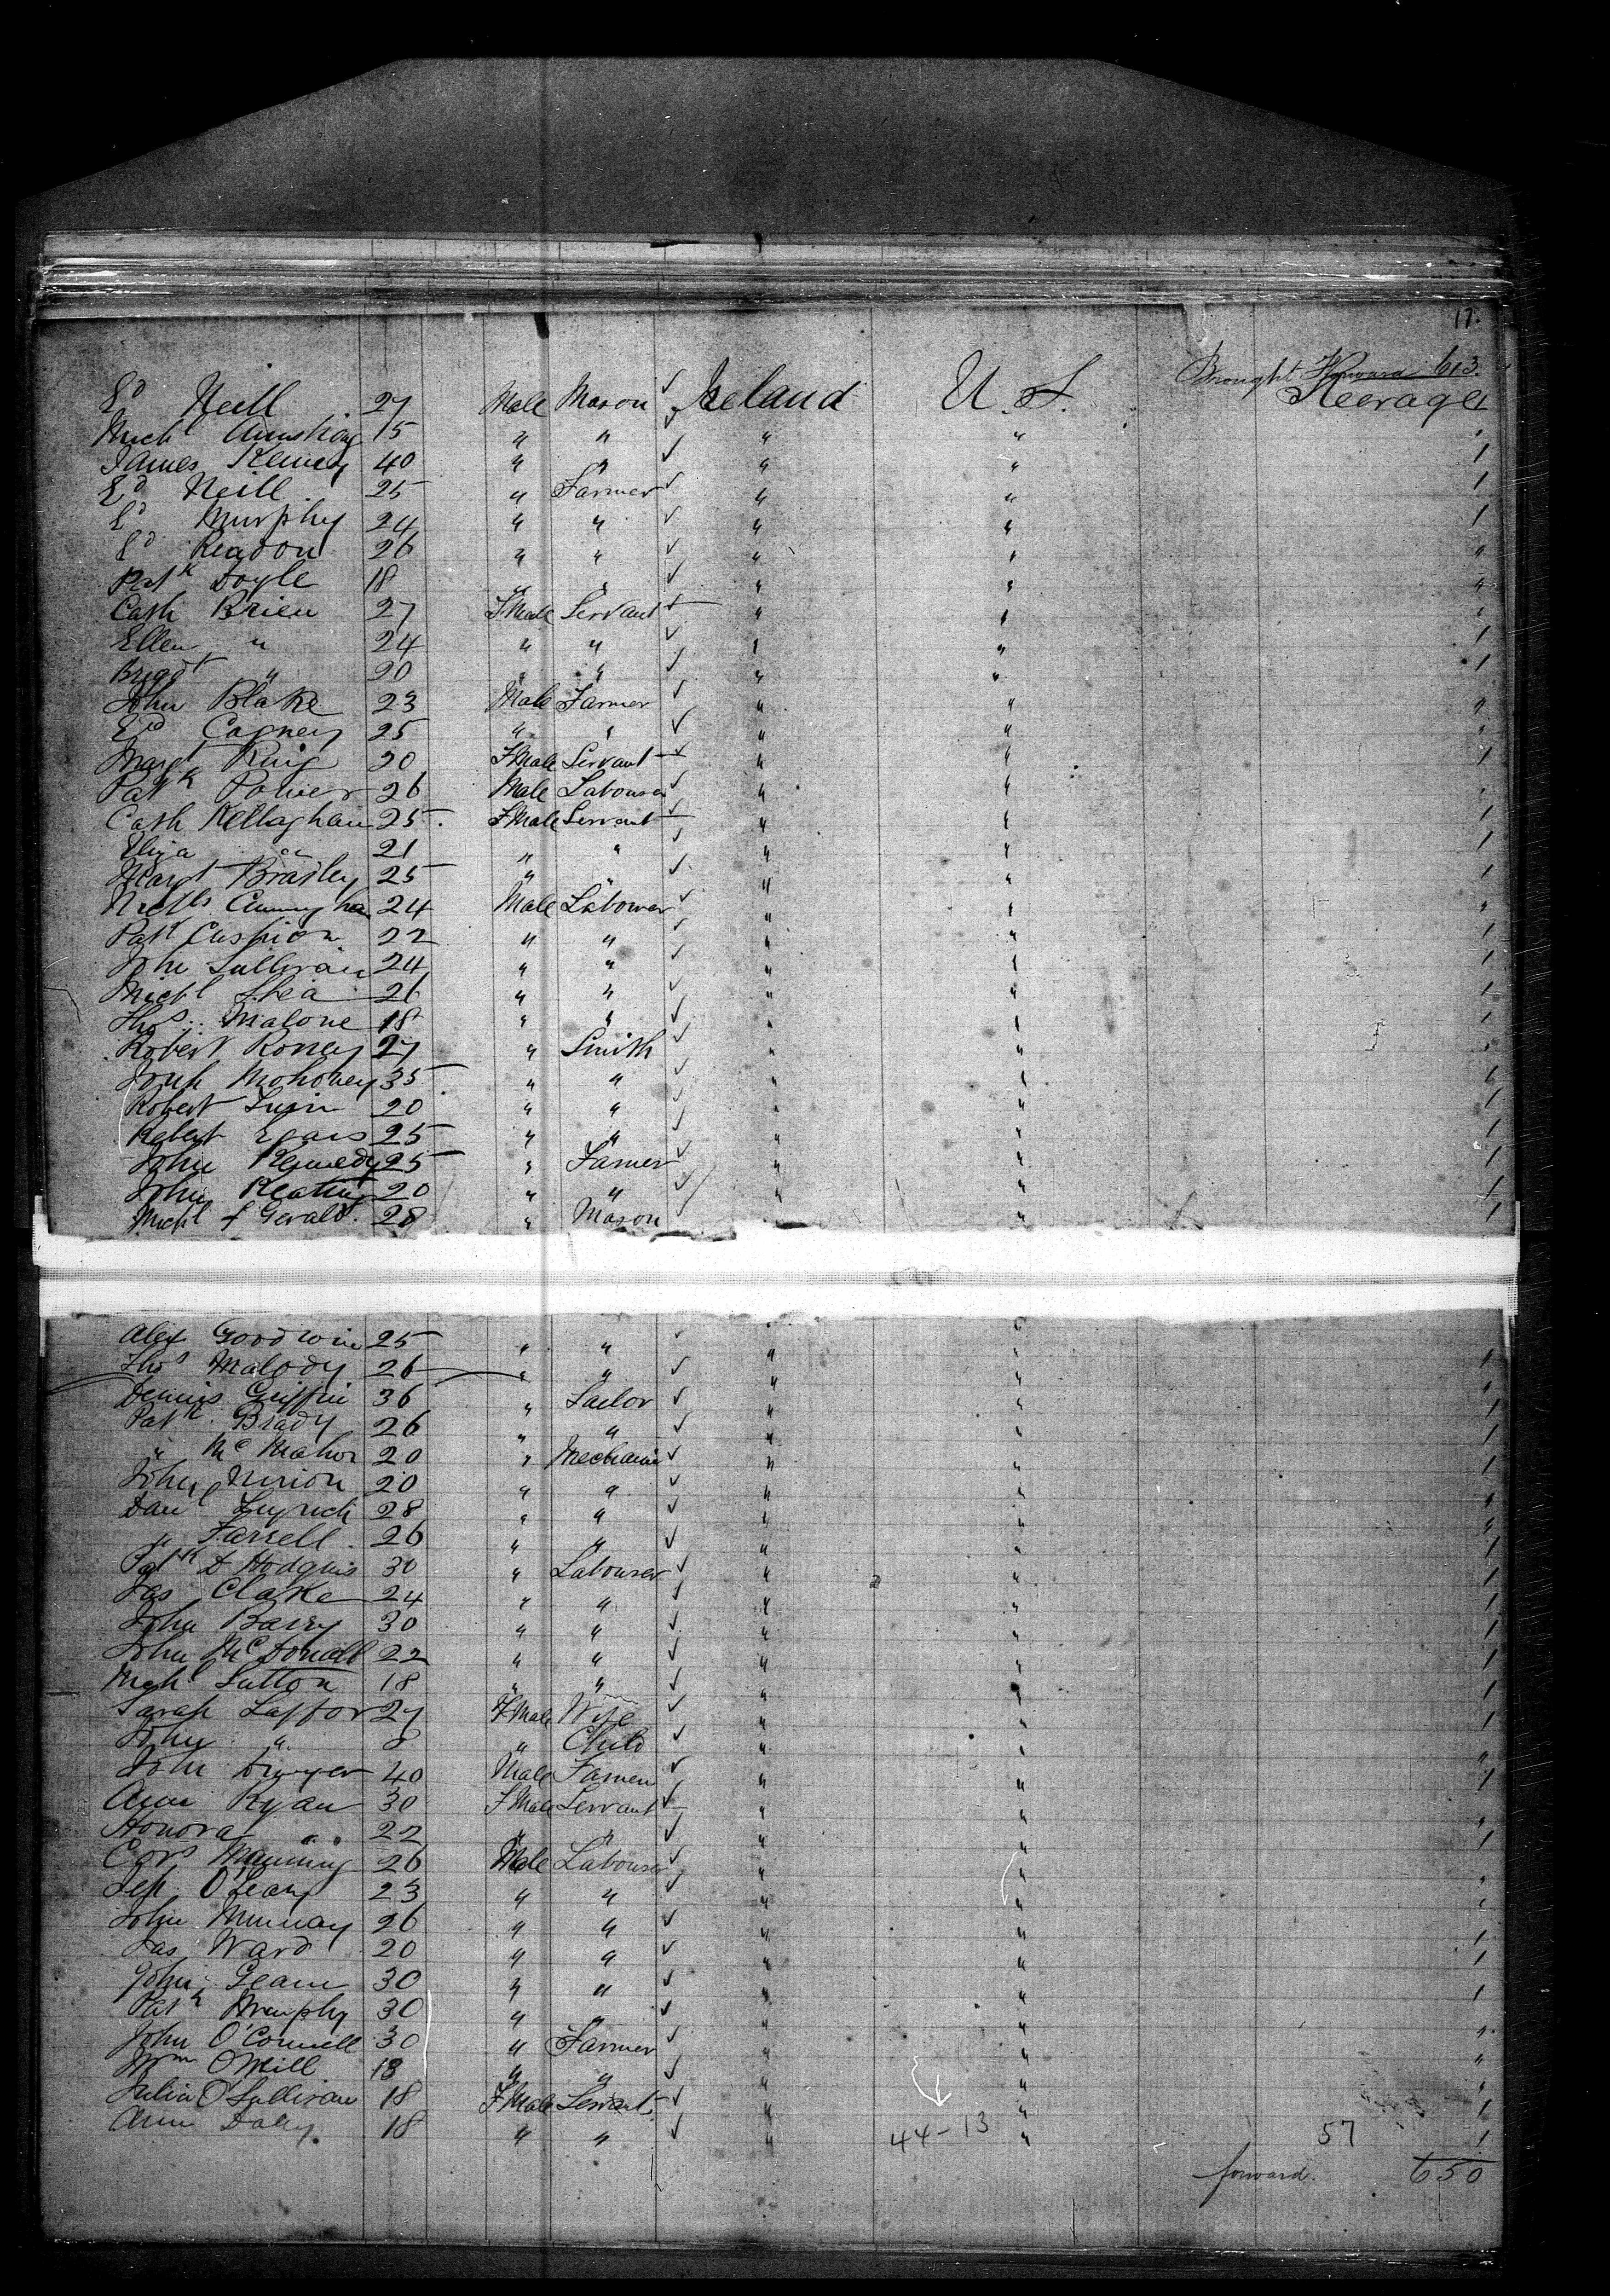 17.
Brought Forward 613.
Ed Neill 27 Male Mason ✓ Ireland U. S. Steerage 1
Mich Armstrong 15 " " ✓ " " "
James Kenney 40 " " ✓ " " 1
Ed Neill 25 " Farmer ✓ " " 1
Ed Murphy 24 " " ✓ " " 1
Ed Reardon 26 " " ✓ " " "
Patk Doyle 18 " " ✓ " " "
Cath Brien 27 FMale Servant ✓ " " "
Ellen " 24 " " ✓ " " 1
Brigdt " 20 " " ✓ " " 1
John Blake 23 Male Farmer ✓ " " "
Ed Cagney 25 " " ✓ " " "
Margt King 20 FMale Servant ✓ " " 1
Patk Power 26 Male Labourer ✓ " " "
Cath Kellaghan 25 FMale Servant ✓ " " 1
Eliza " 21 " " ✓ " " 1
Margt Brasley 25 " " ✓ " " 1
24 Male Labourer ✓ " " "
Patk Cushion 22 " " ✓ " " 1
John Sullivan 24 " " ✓ " " 1
Michl Shea 26 " " ✓ " " 1
Thos Malone 18 " " ✓ " " 1
Robert 27 " Smith ✓ " " "
Mohoney 35 " " ✓ " " "
Robert 20 " " ✓ " " 1
Robert Egars 25 " " ✓ " " 1
John Kennedy 25 " Farmer ✓ " " 1
John Keating 20 " " ✓ " " 1
Michl f Gerald. 28 " Mason ✓ " " 1
Alex Goodwin 25 " " ✓ " "
Thos Malody 26 " " ✓ " " 1
Dennis Griffin 36 " Tailor ✓ " " "
Patk Brady 26 " " ✓ " " 1
" McMahon 20 " Mechanic ✓ " " 1
John 20 " " ✓ " " 1
Danl 28 " " ✓ " " "
" Farrell 26 " " ✓ " " "
Patk D Hodgins 30 " Labourer ✓ " " 1
Jas Clarke 24 " " ✓ " " 1
John Barry 30 " " ✓ " " 1
John McDonall 22 " " ✓ " " 1
Michl Sutton 18 " " ✓ " " 1
Sarah Laffor 27 FMale Wife ✓ " " 1
John " 8 " Child ✓ " "
John Dwyer 40 Male Farmer ✓ " " "
Ann Ryan 30 FMale Servant ✓ " " 1
Honora " 22 " " ✓ " " "
Cors Manning 26 Male Labourer ✓ " " 1
O'Leary 23 " " ✓ " " "
John Murray 26 " " ✓ " " "
Jas Ward 20 " " ✓ " " 1
John 30 " " ✓ " " 1
Patk Murphy 30 " " ✓ " " 1
John O'Connell 30 " Farmer ✓ " " "
Wm O'Neill 18 " " ✓ " " "
Julia O'Sullivan 18 FMale Servant ✓ " " "
Ann Daley 18 " " ✓ " " 1
44-13 57
forward. 650